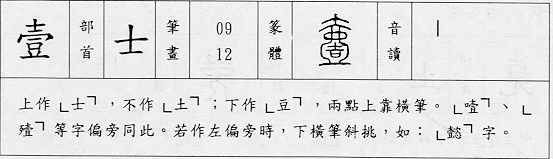 壹 部首 士 筆畫 09 12 篆體 音讀 ㄧ
上作「士」，不作「土」；下作「豆」，兩點上靠橫筆。「噎」、「
殪」等字偏旁同此。若作左偏旁時，下橫筆斜挑，如：「懿」字。